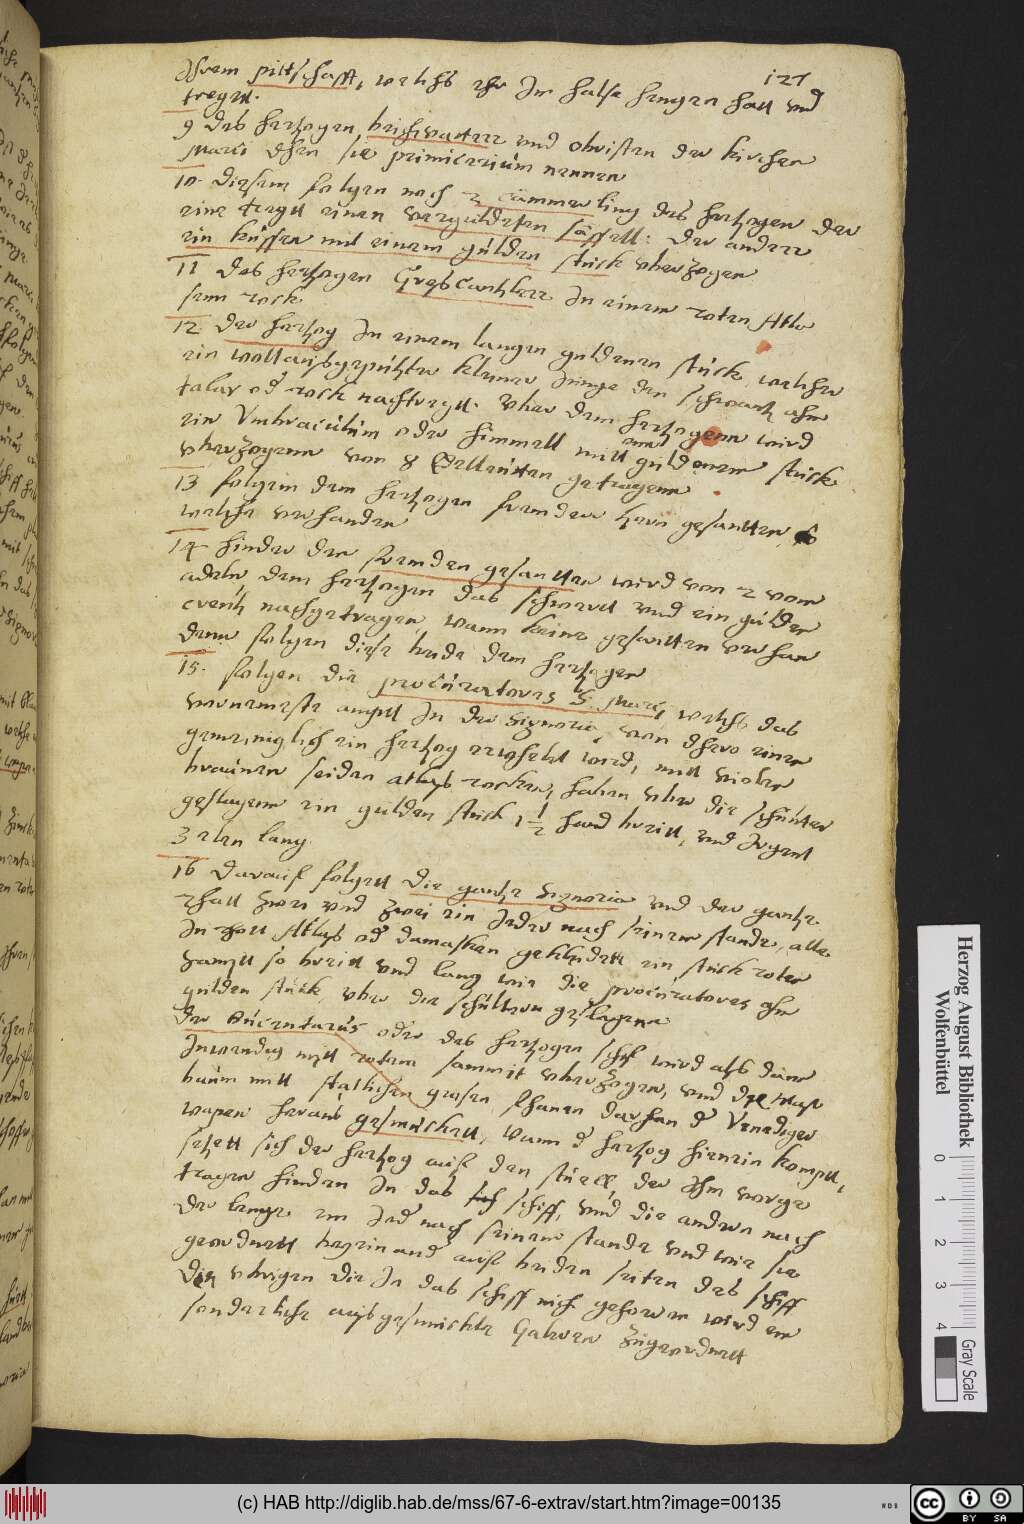 127
Ihrem pittschafft, welchs ehr Im halse hengen hatt vnd
tregtt.
9 Des hertzogen beichvatterr vnd obristen der kirchen
Marci dhen sie primicerium nennen
10. Diesem folgen nach 2 Cammerling des hertzogen der
eine tregtt einen verguldeten sessell: der andere
ein küssen mit einem gülden stück vberzogen
11 Des hertzogen GrosCantzlerr In einem roten Atlas
senn rock
12. Der hertzog In einem langen guldenen stück, welcher
ein woll ausgeputzter kleiner Junge den schwantz ahm
talar od rock nachtregtt. vber dem hertzogenn wird
ein Vmbraculum oder himmell mitt guldenem stück
vberzogenn von 8 Edelleutten getragenn
13 folgen dem hertzogen frembder hern gesantten, so
welche vorhanden
14 hinder den frembden gesantten wird von 2 vom
adeln dem hertzogen das schwertt vnd ein gülden
creutz nachgetragen, wann keine gesantten vorhan
denn folgen diese beide dem hertzogen
15. folgen die procuratores S. Marci, welchs das
vornemeste amptt In der Signoria, von dhero einen
gemeiniglich ein hertzog erwehlt wird, mitt violen
braunen seiden atlas rocken, haben vber die schulter
geslagenn ein gulden stück 1 1/2 hand breitt, vnd Irgent
3 elen lang.
16 Darauf folgett die gantze Signoria vnd der gantze
rhatt zwei vnd zwei ein Jeder nach seinem stande, alle
In rott Atlas od damasken gekleidett ein stück roter
sampt so breitt vnd lang wie die procuratores ahn
gulden stück, vber die schultern geslagenn
Der Bucentaurus oder des hertzogen schif wird als dann
Inwendig mitt rotem sammit vberzogen, vnd der Mast
baum mitt statlichen grosen fhanen daran d Venediger
wapen heraus gesmückett, wann d hertzog hienein kompt,
setzett sich der hertzog auf den stuell, der Ihm vorge
tragen hinden In das schiff, vnd die andern nach
der lenge ein Jed nach seinem stande vnd wie sie
geordnett hereinand auf beiden seiten des schiff
Den vbrigen die In das schiff nich gehoren wird ein
sonderliche ausgesmückte Galeren zugeordnett
Herzog August Bibliothek
Wolfenbüttel
0 1 2 3 4
Gray Scale
(c) HAB http://diglib.hab.de/mss/67-6-extrav/start.htm?image=00135
WDB
cc BY SA